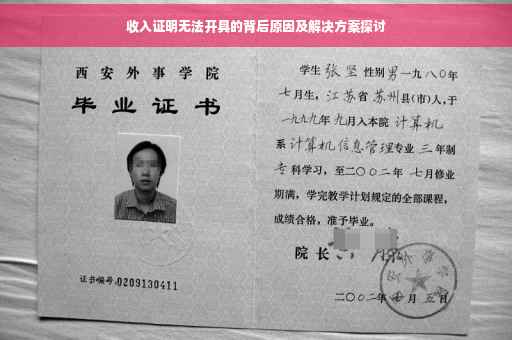 收入证明无法开具的背后原因及解决方案探讨
西安外事学院
毕业证书
证书编号:0209130411
学生 张坚 性别 男 一九八〇年
七月生, 江苏省 苏州县(市)人,于
一九九九年 九月入本院 计算机
系 计算机信息管理专业 三 年制
专科学习, 至二〇〇二年 七月修业
期满, 学完教学计划规定的全部课程,
成绩合格, 准予毕业。
院长
二〇〇二年 月 五日